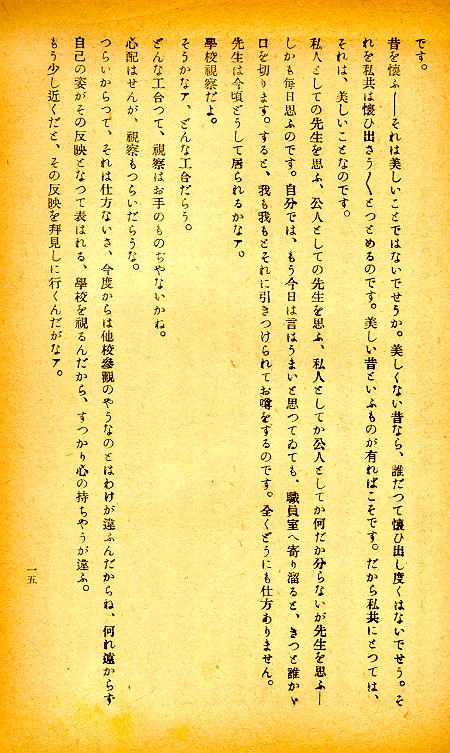 です。
昔を懐ふ――それは美しいことではないでせうか。美しくない昔なら、誰だつて懐ひ出し度くはないでせう。そ
れを私共は懐ひ出さう〳〵とつとめるのです。美しい昔といふものが有ればこそです。だから私共にとつては、
それは、美しいことなのです。
私人としての先生を思ふ、公人としての先生を思ふ、私人としてか公人としてか何だか分らないが先生を思ふ――
しかも毎日思ふのです。自分では、もう今日は言はうまいと思つてゐても、職員室へ寄り溜ると、きつと誰かゞ
口を切ります。すると、我も我もとそれに引きつけられてお噂をするのです。全くどうにも仕方ありません。
先生は今頃どうして居られるかなア。
學校視察だよ。
そうかなア、どんな工合だらう。
どんな工合つて、視察はお手のものぢやないかね。
心配はせんが、視察もつらいだらうな。
つらいからつて、それは仕方ないさ、今度からは他校參觀のやうなのとはわけが違ふんだからね、何れ遠からず
自己の姿がその反映となつて表はれる、學校を視るんだから、すつかり心の持ちやうが違ふ。
もう少し近くだと、その反映を拜見しに行くんだがなア。
一五